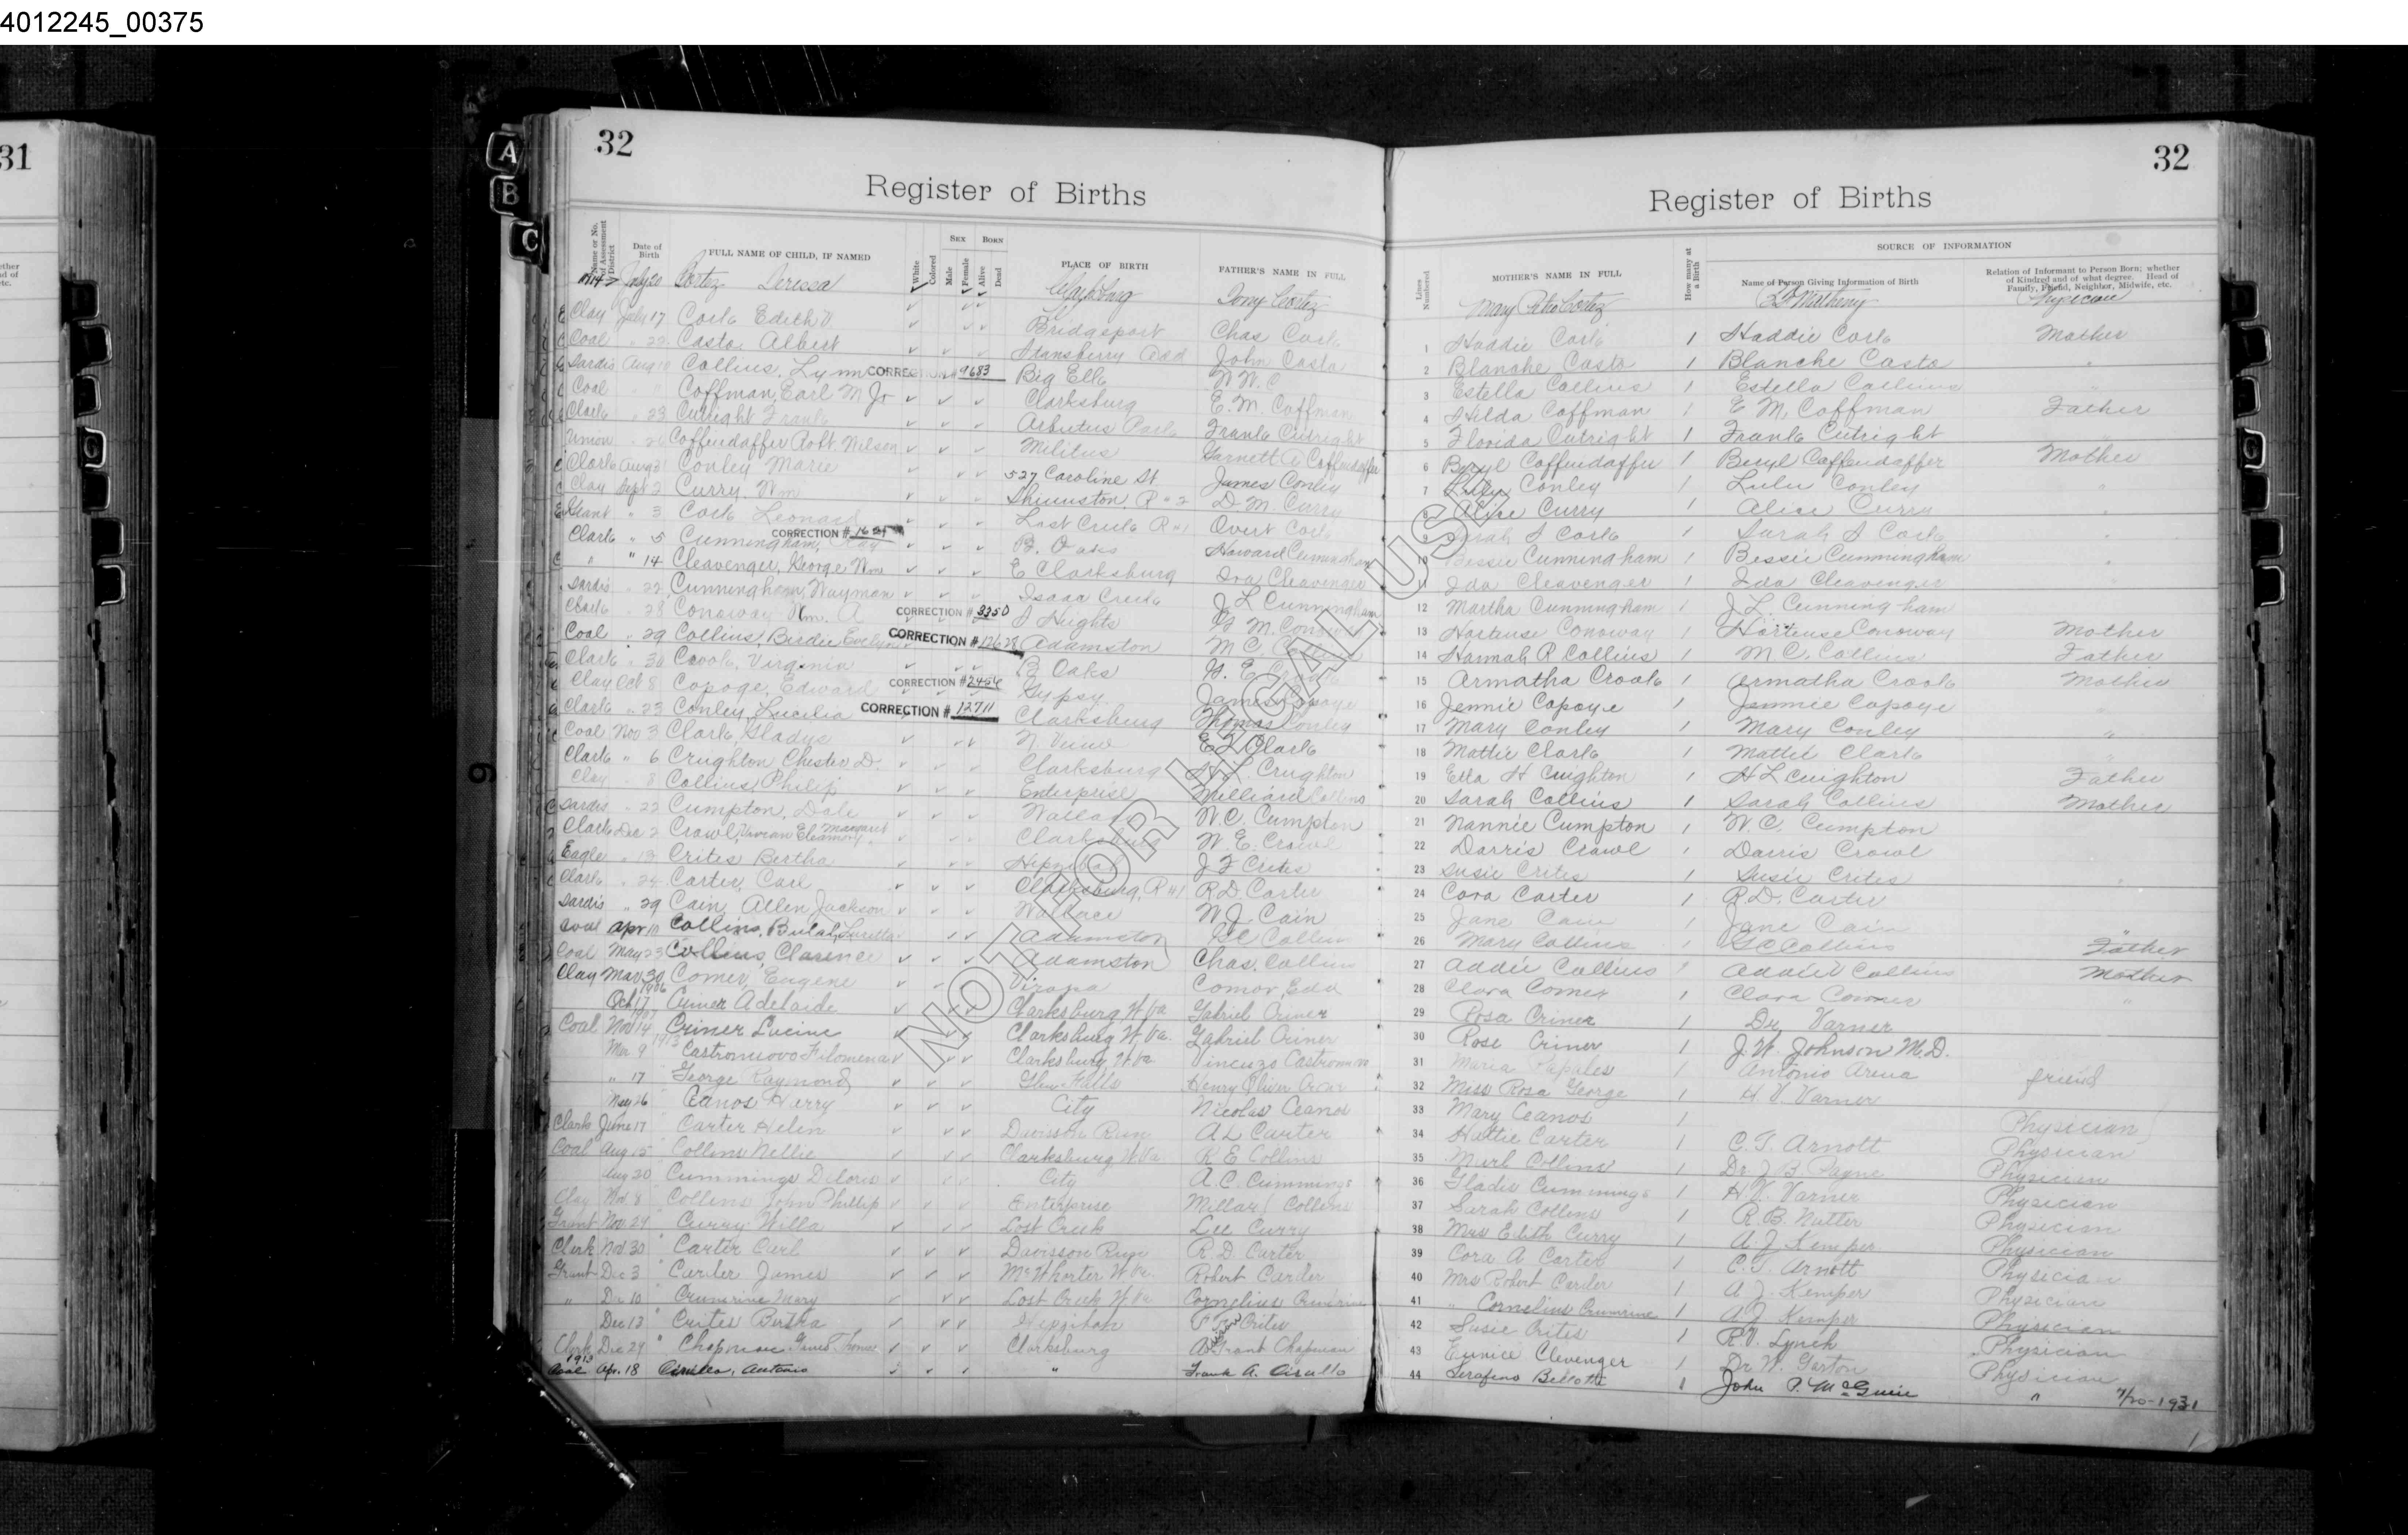 4012245_00375
31
32
Register of Births
Name or No. of Assessment District
Date of Birth
FULL NAME OF CHILD, IF NAMED
White
Colored
SEX
Male
Female
BORN
Alive
Dead
PLACE OF BIRTH
FATHER'S NAME IN FULL
July 20 Cortez Tony Cortez
Clay July 17 Cork Edith V Bridgeport Chas Cork
Coal " 22 Casto, Albert Stansberry Add John Casto
Sardis Aug 10 Collins, Lynn CORRECTION # 9683 Big Elk W W. C
Coal " Coffman, Earl M Jr Clarksburg E. M. Coffman
Clark " 23 Cutright Frank Arbutus Park Frank Cutright
Union " 26 Coffindaffer Robt Wilson Militus Garnett A Coffindaffer
Clark Aug 31 Conley Marie 527 Caroline St James Conley
Clay Sept 2 Curry, Wm Shinnston, R # 2 D. M. Curry
Grant " 3 Cork Leonard Lost Creek R # 1 Overt Cork
Clark " 5 Cunningham, Ray CORRECTION # B. Oaks Howard Cunningham
" " 14 Cleavenger, George Wm E Clarksburg Ira Cleavenger
Sardis " 22 Cunningham, Wayman Isaac Creek J L Cunningham
Clark " 28 Conoway Wm. A CORRECTION # 3350 Hights M. Conoway
Coal " 29 Collins, Birdie Evelyn CORRECTION # 12628 Adamston M C. Collins
Clark " 30 Crook, Virginia B Oaks E Crook
Clay Oct 8 Copoge, Edward CORRECTION # 2456 Gypsy James Copoye
Clark " 23 Conley, Lucilia CORRECTION # 12711 Clarksburg Thomas Conley
Coal Nov 3 Clark, Gladys N View E L Clark
Clark " 6 Crughton Chester D. Clarksburg H. L. Crughton
Clay " 8 Collins, Philip Enterprise Milliard Collins
Sardis " 22 Cumpton, Dale Wallace W. C. Cumpton
Clark Dec 2 Crawl, Vivian Eleanory Margaret Clarksburg W. E. Crawl
Eagle " 13 Crites Bertha Hepzibah J F Crites
Clark " 24 Carter, Carl Clarksburg, R # 1 R. D. Carter
Sardis " 29 Cain, Allen Jackson Wallace W. J. Cain
Coal Apr 10 Collins, Beulah Luretta Adamston G C Collins
Coal May 23 Collins, Clarence Adamston Chas. Collins
Clay Mar 30 Comer, Eugene Viropa Comer, Edd
1906
Oct 17 Criner Adelaide Clarksburg, W Va Gabriel Criner
Coal Nov 14 Criner Lucine Clarksburg W. Va. Gabriel Criner
Mar 9 1913 Castronuovo Filomena Clarksburg, W Va Vincuzo Castronuovo
" 17 George Raymond Glen Falls Henry Oliver
May 26 Ceanos Harry City Nicolas Ceanos
Clark June 17 Carter Helen Davisson Run A L Carter
Coal Aug 15 Collins Nellie Clarksburg W Va R E Collins
Aug 20 Cummings Deloris City A. C. Cummings
Clay Nov 8 Collens John Phillip Enterprise Millard Collens
Grant Nov 24 Curry Willa Lost Creek Lee Curry
Clark Nov 30 Carter Carl Davisson Run R. D. Carter
Grant Dec 3 Carder James McWhorter W Va Robert Carder
" Dec 10 Crumrine Mary Lost Creek W Va Cornelius Crumrine
Dec 13 Crites Bertha Hepzibah Crites
Clark Dec 24 Chapman James Thomas Clarksburg Grant Chapman
1913
Coal Apr. 18 Cirullo, Antonio " Frank A. Cirullo
NOT FOR LEGAL USE
32
Register of Births
Lines Numbered
MOTHER'S NAME IN FULL
How many at a Birth
SOURCE OF INFORMATION
Name of Person Giving Information of Birth
Relation of Informant to Person Born; whether of Kindred and of what degree. Head of Family, Friend, Neighbor, Midwife, etc.
Mary Cortez Matheny Physician
1 Haddie Cork 1 Haddie Cork Mother
2 Blanche Casto 1 Blanche Casto "
3 Estella Collins 1 Estella Collins "
4 Hilda Coffman 1 E M. Coffman Father
5 Florida Cutright 1 Frank Cutright
6 Beryl Coffindaffer 1 Beryl Coffindaffer Mother
7 Lulu Conley 1 Lulu Conley "
8 Alice Curry 1 Alice Curry "
9 Sarah S Cork 1 Sarah S Cork "
10 Bessie Cunningham 1 Bessie Cunningham "
11 Ida Cleavenger 1 Ida Cleavenger "
12 Martha Cunningham 1 J. L. Cunningham
13 Hortense Conoway 1 Hortense Conoway Mother
14 Hannah R Collins 1 M C. Collins Father
15 Armatha Crook 1 Armatha Crook Mother
16 Jennie Copoye 1 Jennie Copoye "
17 Mary Conley 1 Mary Conley "
18 Mattie Clark 1 Mattie Clark "
19 Etta H Crughton 1 H L Crughton Father
20 Sarah Collins 1 Sarah Collins Mother
21 Nannie Cumpton 1 W. C. Cumpton
22 Darris Crawl 1 Darris Crawl
23 Susie Crites 1 Susie Crites "
24 Cora Carter 1 R. D. Carter
25 Jane Cain 1 Jane Cain "
26 Mary Collins 1 G C Collins Father
27 Addie Collins 1 Addie Collins Mother
28 Clara Comer 1 Clara Comer "
29 Rosa Criner 1 Dr Varner
30 Rose Criner 1 J. W. Johnson M. D.
31 Maria Papales 1 Antonio Arena friend
32 Miss Rosa George 1 H. V. Varner
33 Mary Ceanos 1 Physician
34 Hattie Carter 1 C. T. Arnott Physician
35 Merl Collins 1 Dr J. B. Payne Physician
36 Gladis Cummings 1 H V. Varner Physician
37 Sarah Collens 1 R. B. Nutter Physician
38 Mrs Edith Curry 1 A. J. Kemper Physician
39 Cora A Carter 1 C. T. Arnott Physician
40 Mrs Robert Carder 1 A. J. Kemper Physician
41 " Cornelius Crumrine 1 A J. Kemper Physician
42 Susie Crites 1 R. V. Lynch Physician
43 Eunice Clevenger 1 Dr W. Gaston Physician
44 Serafino Bellotte 1 John P. McGuire " 7/20-1931
A
B
C
G
9